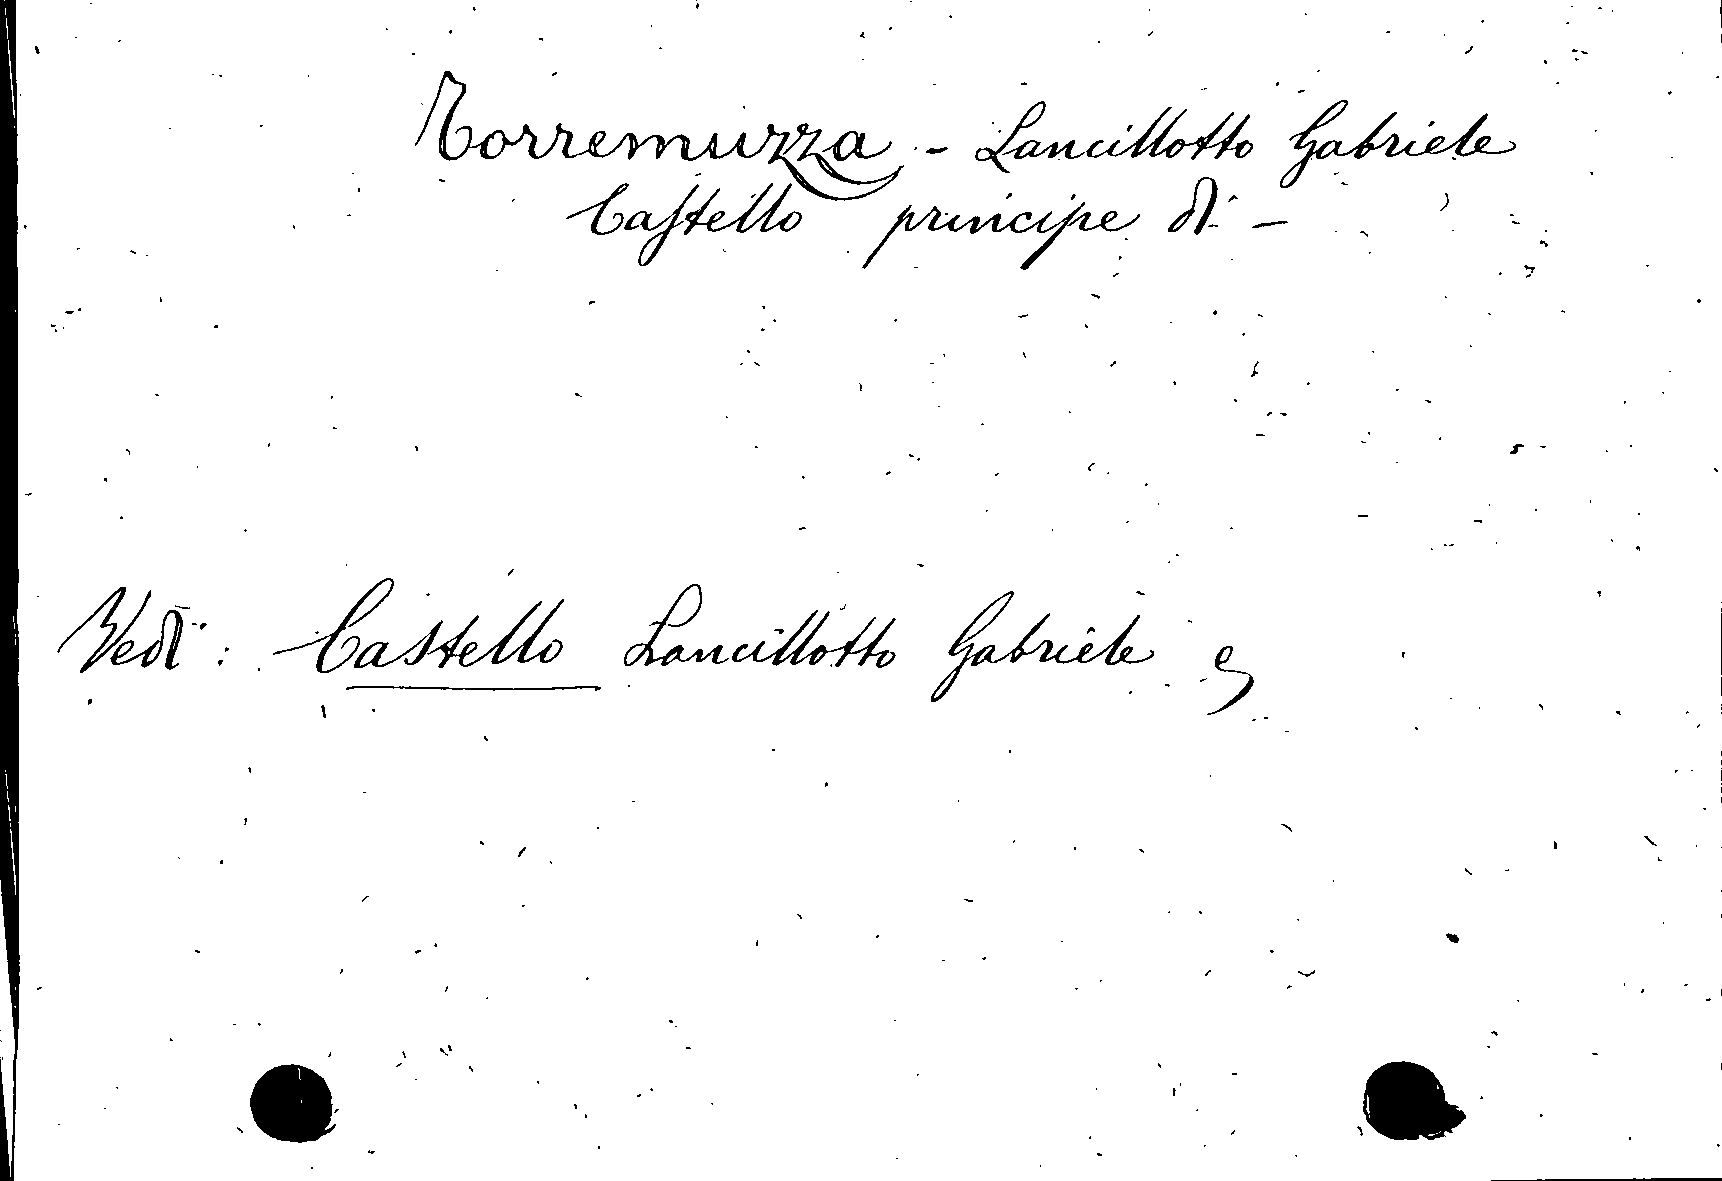 Torremuzza - Lancillotto Gabriele
Castello principe di -
Vedi: Castello Lancillotto Gabriele